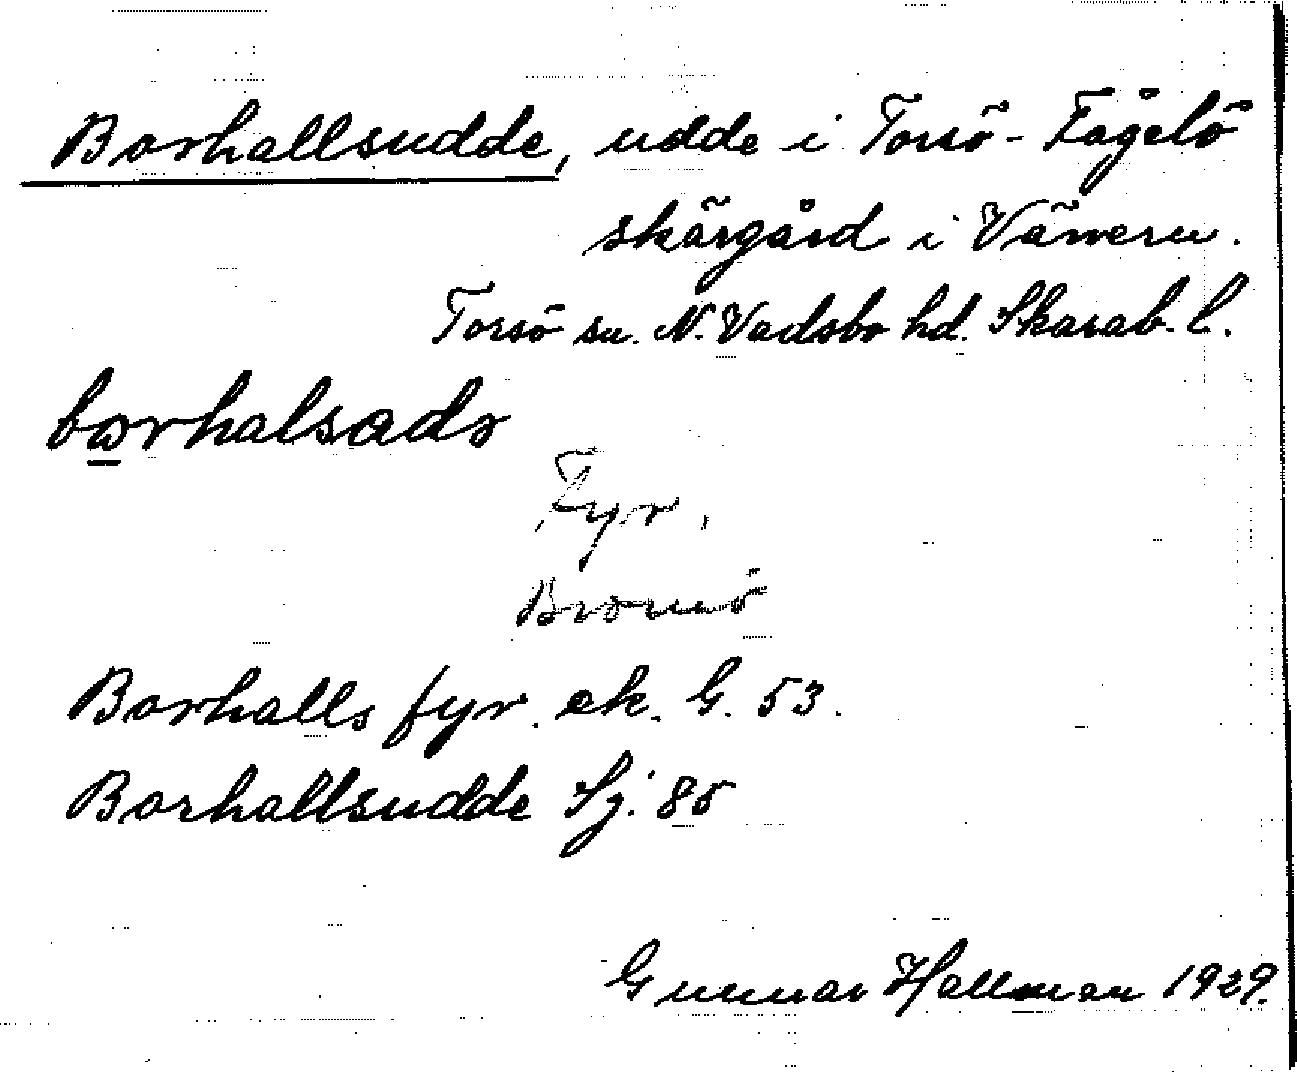 Borhallsudde, udde i Torsö-Fågelö
skärgård i Vänern.
Torsö sn. N. Vadsbo hd. Skarab. l.
bɷrhalsadə
Fyr.
Bromö
Borhalls fyr. ek. G. 53.
Borhallsudde Sj. 85
Gunnar Hallman 1929.